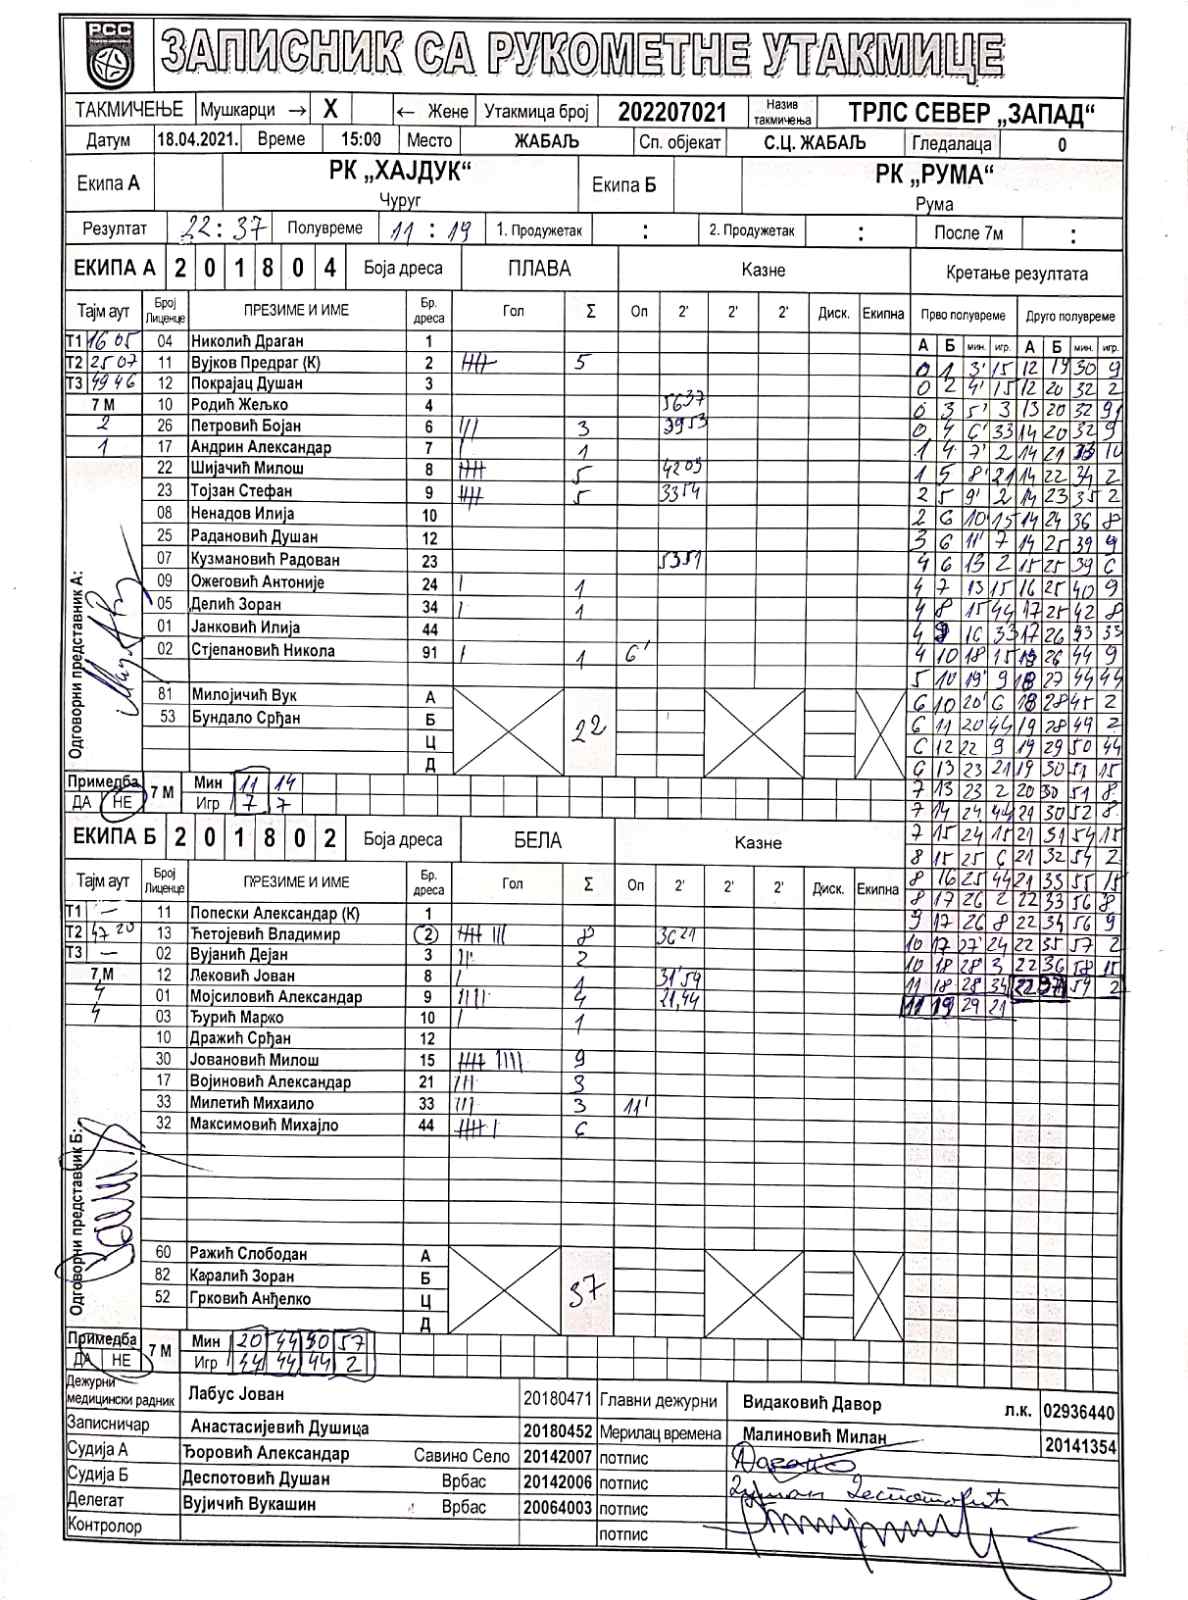 РСС
ЗАПИСНИК СА РУКОМЕТНЕ УТАКМИЦЕ
ТАКМИЧЕЊЕ Мушкарци → X ← Жене Утакмица број 202207021 Назив такмичења ТРЛС СЕВЕР „ЗАПАД“
Датум 18.04.2021. Време 15:00 Место ЖАБАЉ Сп. објекат С.Ц. ЖАБАЉ Гледалаца 0
Екипа А РК „ХАЈДУК“ Чуруг Екипа Б РК „РУМА“ Рума
Резултат 22:37 Полувреме 11:19 1. Продужетак : 2. Продужетак : После 7м :
ЕКИПА А 2 0 1 8 0 4 Боја дреса ПЛАВА Казне Кретање резултата
Тајм аут Број Лиценце ПРЕЗИМЕ И ИМЕ Бр. дреса Гол Σ Оп 2' 2' 2' Диск. Екипна Прво полувреме Друго полувреме
А Б мин. игр. А Б мин. игр.
Т1 16 05 04 Николић Драган 1
Т2 25 07 11 Вујков Предраг (К) 2 5
Т3 49 46 12 Покрајац Душан 3
7 М 10 Родић Жељко 4 5637
2 26 Петровић Бојан 6 3 3953
1 17 Андрин Александар 7 1
22 Шијачић Милош 8 5 4209
23 Тојзан Стефан 9 5 3354
08 Ненадов Илија 10
25 Радановић Душан 12
07 Кузмановић Радован 23 5351
09 Ожеговић Антоније 24 1
05 Делић Зоран 34 1
01 Јанковић Илија 44
02 Стјепановић Никола 91 1 6'
81 Милојичић Вук А
53 Бундало Срђан Б
Ц
Д
22
Одговорни представник А:
0 1 3' 15 12 19 30 9
0 2 4' 15 12 20 32 2
0 3 5' 3 13 20 32 91
0 4 6' 33 14 20 32 9
1 4 7' 2 14 21 33 10
1 5 8' 21 14 22 34 2
2 5 9' 2 14 23 35 2
2 6 10' 15 14 24 36 8
3 6 11' 7 14 25 39 9
4 6 13 2 15 25 39 6
4 7 13 15 16 25 40 9
4 8 15 44 17 25 42 8
4 9 16 33 17 26 43 33
4 10 18 15 18 26 44 9
5 10 19' 9 18 27 44 44
6 10 20' 6 18 28 45 2
6 11 20 44 19 28 49 2
6 12 22 9 19 29 50 44
6 13 23 21 19 30 51 15
7 13 23 2 20 30 51 8
7 14 24 44 21 30 52 8
7 15 24 15 21 31 54 15
8 15 25 6 21 32 54 2
8 16 25 44 21 33 55 15
8 17 26 2 22 33 56 8
9 17 26 8 22 34 56 9
10 17 27' 24 22 35 57 2
10 18 28' 3 22 36 58 15
11 18 28 34 22 37 59 2
11 19 29 21
Примедба ДА НЕ 7 М Мин 11 14
Игр 7 7
ЕКИПА Б 2 0 1 8 0 2 Боја дреса БЕЛА Казне
Тајм аут Број Лиценце ПРЕЗИМЕ И ИМЕ Бр. дреса Гол Σ Оп 2' 2' 2' Диск. Екипна
Т1 — 11 Попески Александар (К) 1
Т2 47 20 13 Ћетојевић Владимир 2 8 3621
Т3 — 02 Вујанић Дејан 3 2
7 М 12 Лековић Јован 8 1 31'54
4 01 Мојсиловић Александар 9 4 21,44
4 03 Ђурић Марко 10 1
10 Дражић Срђан 12
30 Јовановић Милош 15 9
17 Војиновић Александар 21 3
33 Милетић Михаило 33 3 11'
32 Максимовић Михајло 44 6
60 Ражић Слободан А
82 Каралић Зоран Б
52 Грковић Анђелко Ц
Д
37
Одговорни представник Б:
Примедба ДА НЕ 7 М Мин 20 44 50 57
Игр 44 44 44 2
Дежурни медицински радник Лабус Јован 20180471 Главни дежурни Видаковић Давор л.к. 02936440
Записничар Анастасијевић Душица 20180452 Мерилац времена Малиновић Милан 20141354
Судија А Ђоровић Александар Савино Село 20142007 потпис
Судија Б Деспотовић Душан Врбас 20142006 потпис Душан Деспотовић
Делегат Вујичић Вукашин Врбас 20064003 потпис
Контролор потпис